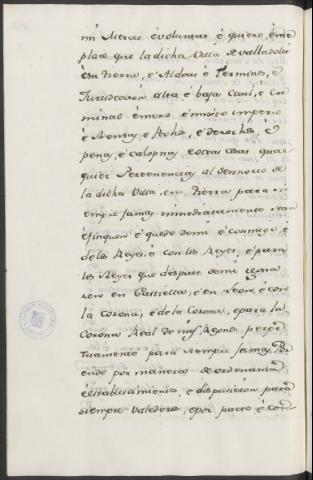 mi Merced é voluntad é quiero, é me
place que la dicha Villa de Valladolid
é su tierra, é Aldeas é Terminos, é
Jurisdiccion alta é baja Cevil, é Cri
minal é mero é mixto imperio
é Rentas é Pechos, é derechos, é
penas, é calopnas é otras cosas quales
quier Pertenencias al Sennorio de
la dicha Villa, é su tierra para si
empre jamas inmediatamente sean
é finquen é quede demi é conmigo, é
delos Reyes é con los Reyes, é para
los Reyes que despues demi regna
ren en Castiella, é en Leon, é con
la corona, é dela Corona, é para la
Corona Real de mis Regnos, perpe
tuamente para siempre jamas, Po
ende por manera de ordenanza
é establecimiento, é disposicion para
siempre valedera, é por pacto é con